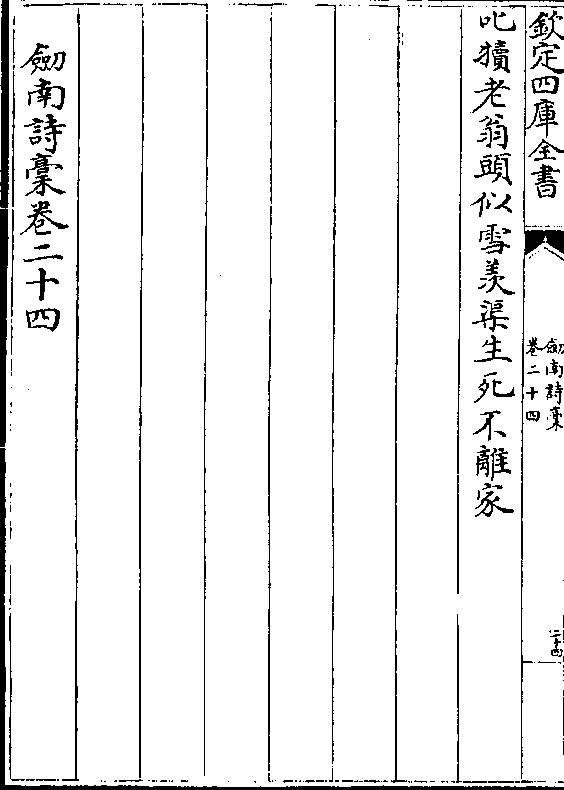 欽定四庫全書
劒南詩稾
卷二十四
二十四
叱犢老翁頭似雪羨渠生死不離家
劒南詩稾卷二十四